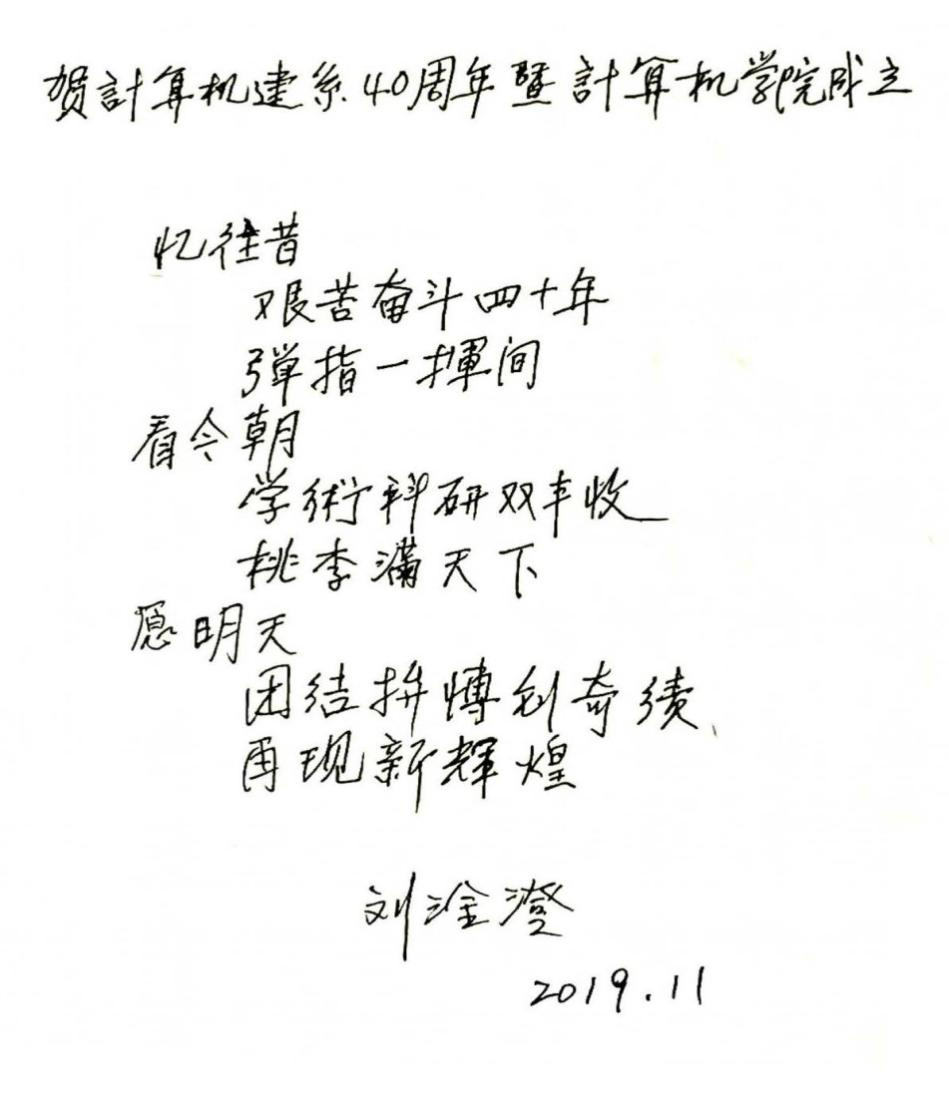 贺計算机建系40周年暨計算机学院成立
忆往昔
艰苦奋斗四十年
弹指一揮间
看今朝
学術科研双丰收
桃李满天下
愿明天
团结拼愽创奇绩
再现新輝煌
刘淦澄
2019.11